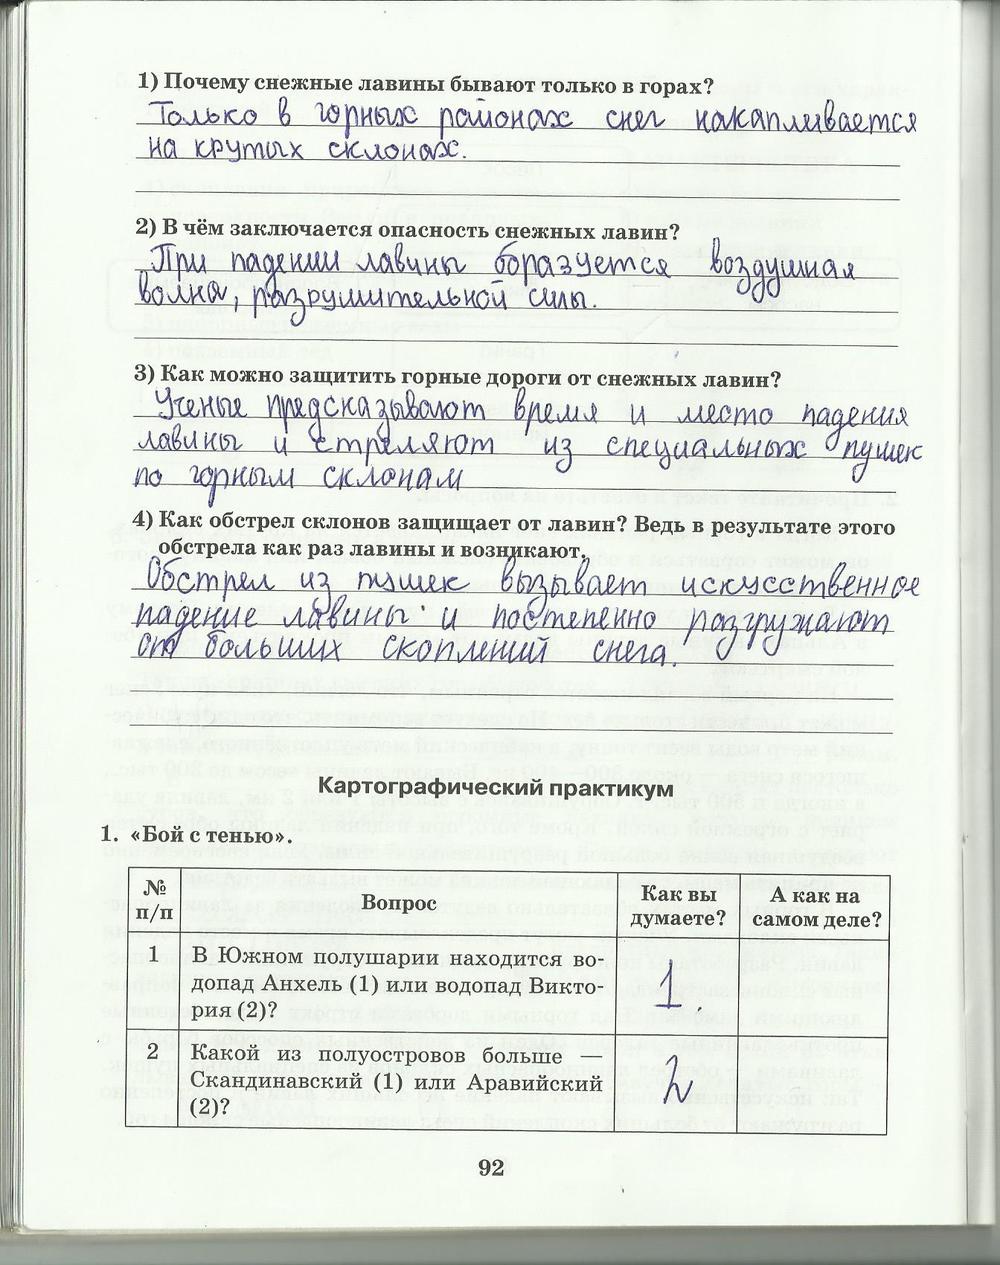 1) Почему снежные лавины бывают только в горах?
Только в горных районах снег накапливается
на крутых склонах.
2) В чём заключается опасность снежных лавин?
При падении лавины боразуется воздушная
волна, разрушительной силы.
3) Как можно защитить горные дороги от снежных лавин?
Ученые предсказывают время и место падения
лавины и стреляют из специальных пушек
по горным склонам
4) Как обстрел склонов защищает от лавин? Ведь в результате этого
обстрела как раз лавины и возникают.
Обстрел из пушек вызывает искусственное
падение лавины и постепенно разгружают
от больших скоплений снега.
Картографический практикум
1. «Бой с тенью».
№ п/п Вопрос Как вы думаете? А как на самом деле?
1 В Южном полушарии находится во-
допад Анхель (1) или водопад Викто- 1
рия (2)?
2 Какой из полуостровов больше —
Скандинавский (1) или Аравийский 2
(2)?
92